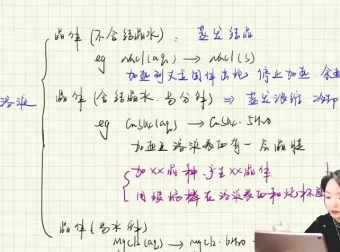 晶体(不含结晶水): 蒸发结晶
eg NaCl(aq) → NaCl(s)
加热到大量固体出现, 停止加热, 余
溶液
晶体(含结晶水、易分解) ⇒ 蒸发浓缩、冷却
eg CuSO₄(aq) → CuSO₄·5H₂O
加热至溶液表面有一层晶膜
加××晶种,产生××晶体
用玻璃棒在溶液表面和烧杯壁
晶体(易水解)
MgCl₂(aq) → MgCl₂·6H₂O